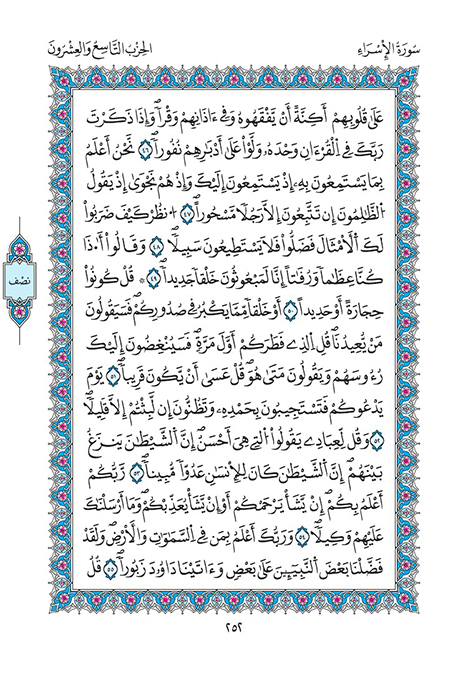 سُورَةُ الإِسْرَاءِ
الحِزْبُ التَّاسِعُ وَالعِشْرُونَ
عَلَىٰ قُلُوبِهِمْ أَكِنَّةً أَنْ يَفْقَهُوهُ وَفِي ءَاذَانِهِمْ وَقْراًۖ وَإِذَا ذَكَرْتَ
رَبَّكَ فِي الْقُرْءَانِ وَحْدَهُۥ وَلَّوْاْ عَلَىٰ أَدْبَٰرِهِمْ نُفُوراًۖ ٤٦ نَّحْنُ أَعْلَمُ
بِمَا يَسْتَمِعُونَ بِهِۦٓ إِذْ يَسْتَمِعُونَ إِلَيْكَ وَإِذْ هُمْ نَجْوَىٰٓ إِذْ يَقُولُ
الظَّٰلِمُونَ إِن تَتَّبِعُونَ إِلَّا رَجُلاً مَّسْحُوراًۖ ٤٧ ٱنظُرْ كَيْفَ ضَرَبُواْ
لَكَ الَامْثَالَ فَضَلُّواْ فَلَا يَسْتَطِيعُونَ سَبِيلاًۖ ٤٨ وَقَالُوٓاْ أَٰ۟ذَا
كُنَّا عِظَٰماً وَرُفَٰتاً إِنَّا لَمَبْعُوثُونَ خَلْقاً جَدِيداًۖ ٤٩ قُلْ كُونُواْ
حِجَارَةً اَوْ حَدِيداً ٥٠ اَوْ خَلْقاً مِّمَّا يَكْبُرُ فِي صُدُورِكُمْۖ فَسَيَقُولُونَ
مَنْ يُّعِيدُنَاۖ قُلِ الَّذِي فَطَرَكُمْ أَوَّلَ مَرَّةٍۖ فَسَيُنْغِضُونَ إِلَيْكَ
رُءُوسَهُمْ وَيَقُولُونَ مَتَىٰ هُوَۖ قُلْ عَسَىٰٓ أَنْ يَّكُونَ قَرِيباًۖ ٥١ يَوْمَ
يَدْعُوكُمْ فَتَسْتَجِيبُونَ بِحَمْدِهِۦ وَتَظُنُّونَ إِن لَّبِثْتُمْ إِلَّا قَلِيلاًۖ
٥٢ وَقُل لِّعِبَادِي يَقُولُواْ الَّتِي هِيَ أَحْسَنُۖ إِنَّ الشَّيْطَٰنَ يَنزَغُ
بَيْنَهُمْۖ إِنَّ الشَّيْطَٰنَ كَانَ لِلْإِنسَٰنِ عَدُوّاً مُّبِيناًۖ ٥٣ رَّبُّكُمْ
أَعْلَمُ بِكُمْۖ إِنْ يَّشَأْ يَرْحَمْكُمْ أَوْ إِنْ يَّشَأْ يُعَذِّبْكُمْۖ وَمَا أَرْسَلْنَٰكَ
عَلَيْهِمْ وَكِيلاًۖ ٥٤ وَرَبُّكَ أَعْلَمُ بِمَن فِي السَّمَٰوَٰتِ وَالَارْضِۖ وَلَقَدْ
فَضَّلْنَا بَعْضَ النَّبِيٓـِٕينَ عَلَىٰ بَعْضٍ وَءَاتَيْنَا دَاوُۥدَ زَبُوراًۖ ٥٥ قُلُ
نصْف
٢٥٢